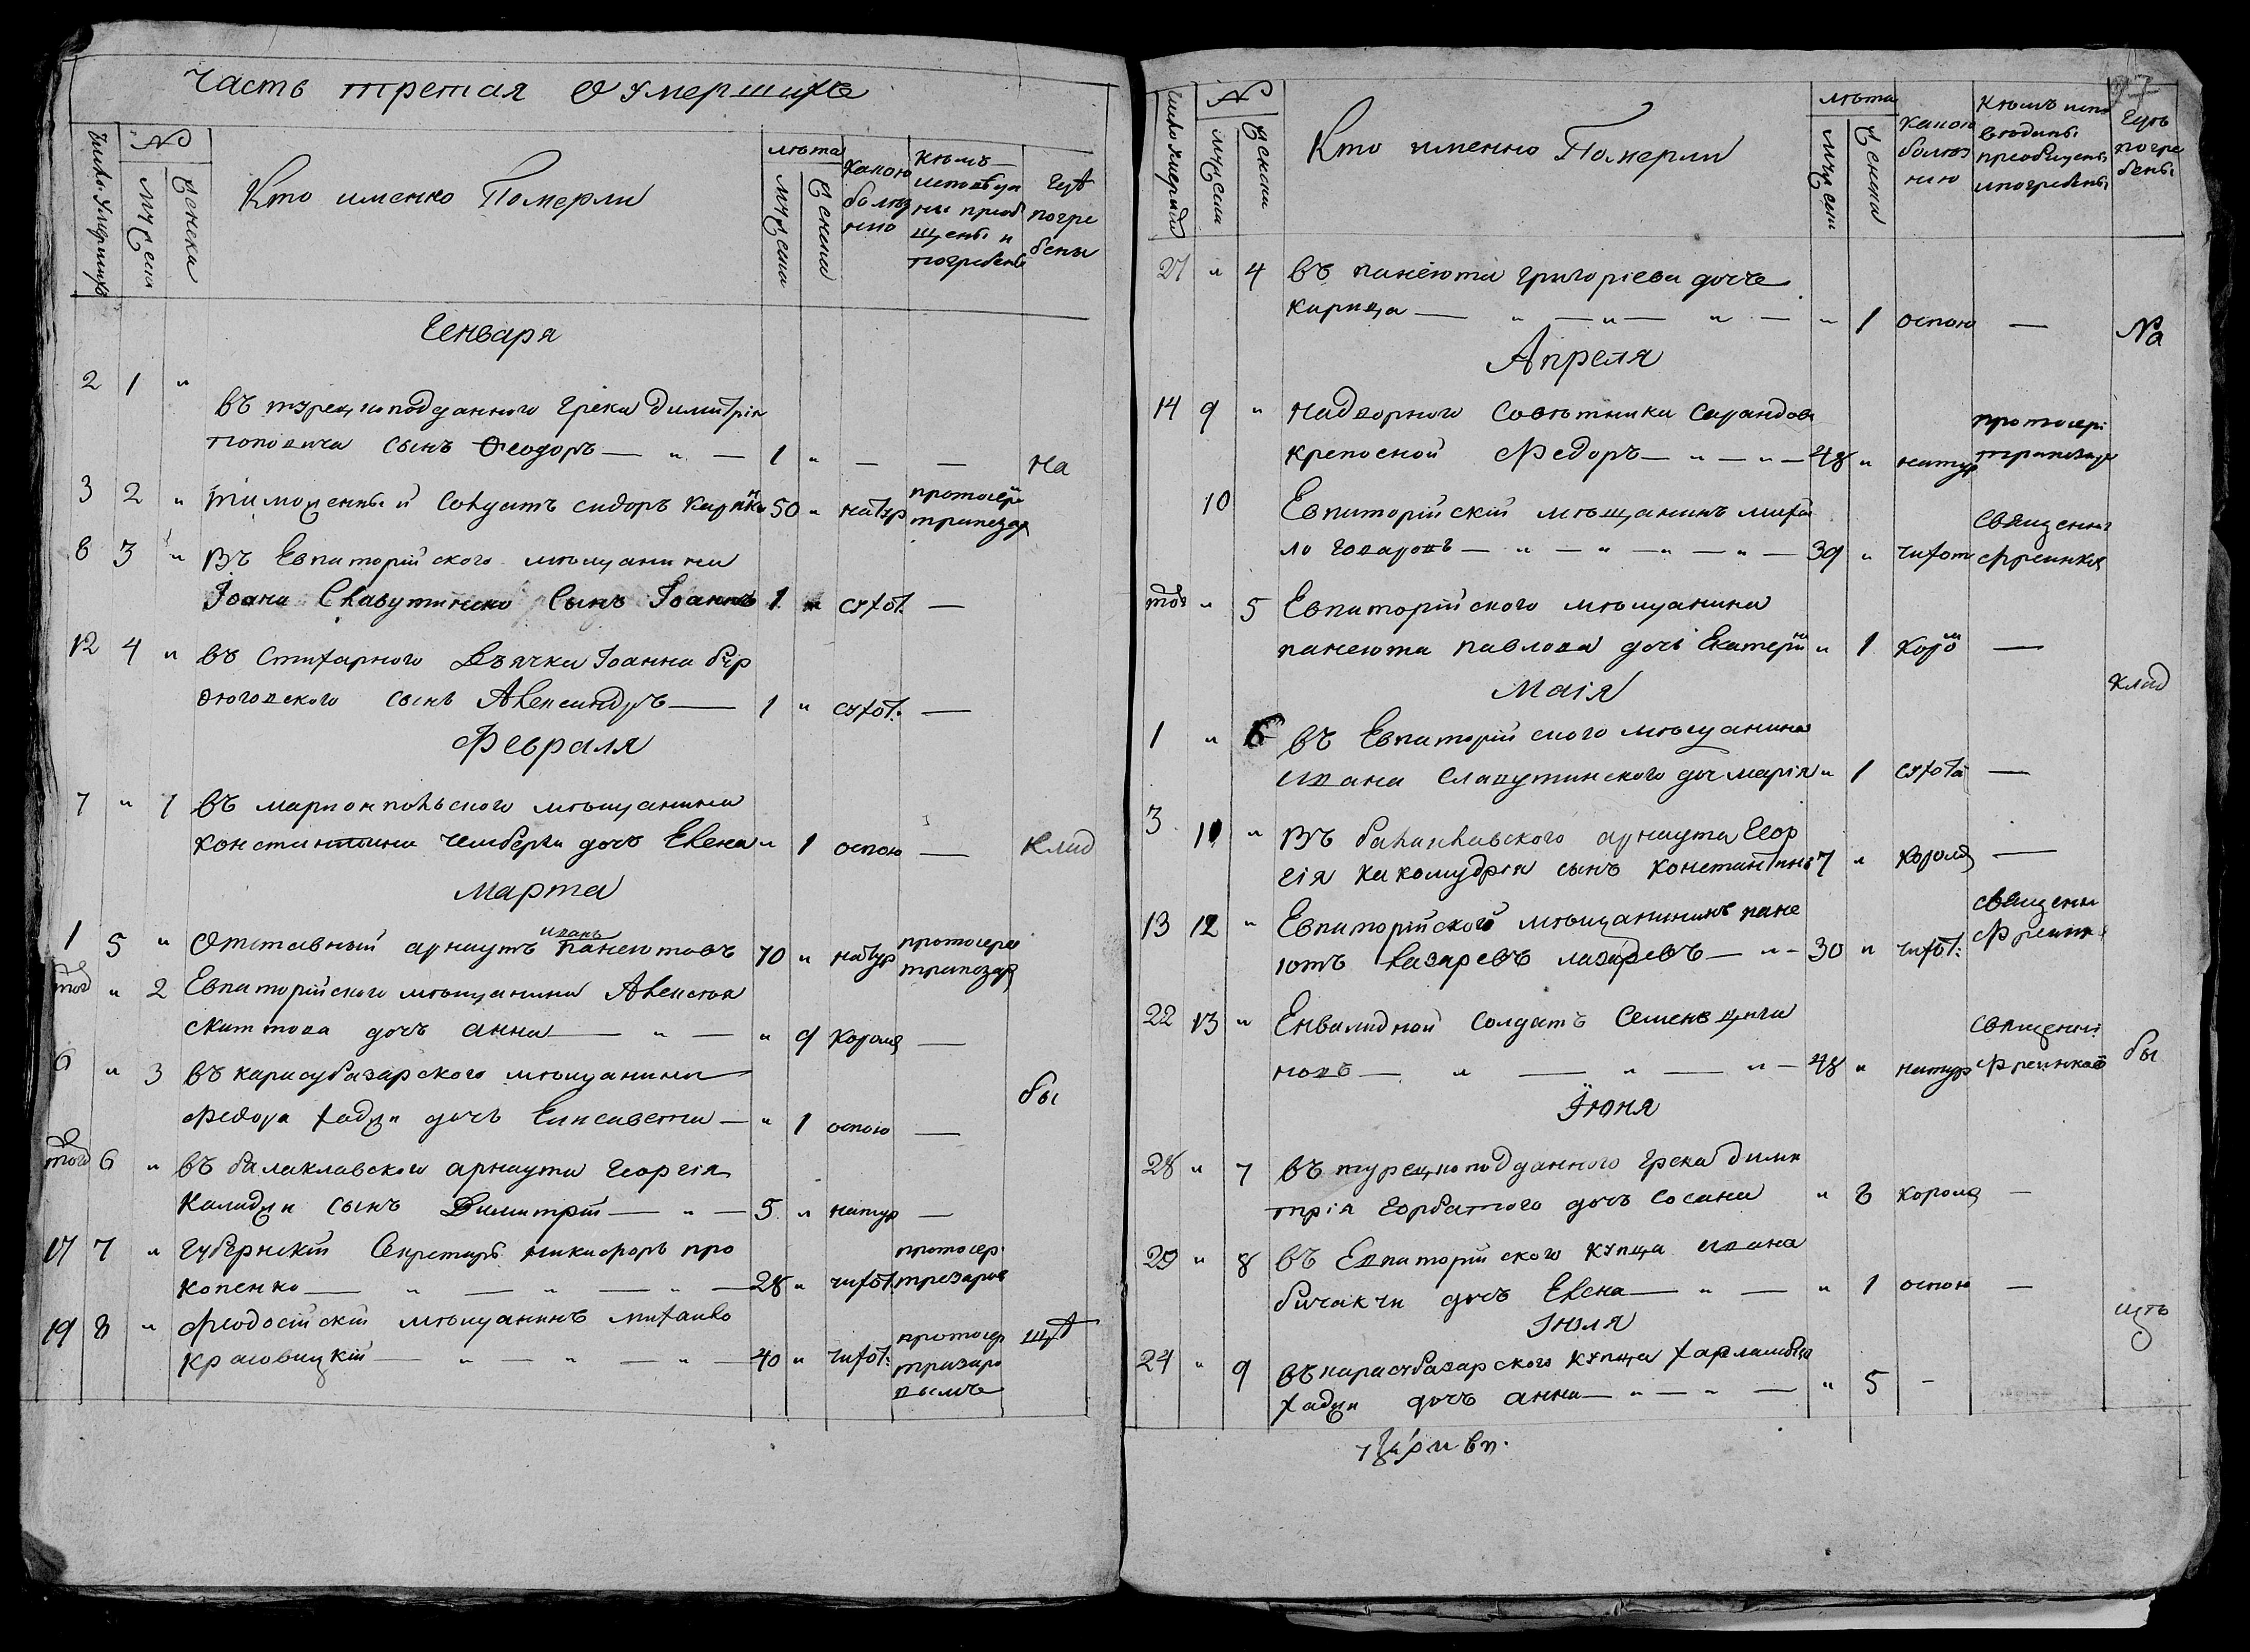 Часть третая О Умершихъ
Число Умершихъ
№
Мужески
Женски
Кто именно Померли
лѣта
Мужески
Женски
Какою болѣз нію
Кѣмъ исповѣда ны приоб щены и погребены
Гдѣ погре бены
Генваря
2 1 " въ турецкоподданного Грека Димитрія
поповича сынъ Ѳеодоръ — " — 1 " — — На
3 2 " 50 " натур протоіере трапезар
6 3 " Въ Евпаторійского мѣщанина
Іоана Славутинско Сынъ Іоаннъ 1 " сухот. —
12 4 " въ Стихарного Дьячка Іоанна Бур
дюговского сынъ Александръ — 1 " сухот. —
Февраля
7 " 1 въ мариопольского мѣщанина
константина Чембержи дочь Елена " 1 оспою — Клад
Марта
1 5 " Отставный арнаутъ иванъ Панеютовъ 70 " натур протоіере трапезар
того " 2 Евпаторійского мѣщанина Алексѣя
дочь анна — " — " 9 Корою —
6 " 3 въ карасубазарского мѣщанина
Федора хаджи дочь Елисавета — " 1 оспою — бы
того 6 " въ балаклавского арнаута Георгія
Каладжи сынъ Димитрій — " — 5 " натур —
17 7 " Губернскій Секретарь никифоръ про
копенко — " — " — " — 28 " чихот. протоіер трезаров
19 8 " Феодосійскій мѣщанинъ михаило
Красовицкій — " — " — " — 40 " чихот. протоіер тризаро вымъ щѣ
Число умерших
№
Мужески
Женски
Кто именно Померли
лѣта
Мужески
Женски
Какою болѣз нію
Кѣмъ испо вѣданы приобщены и погребены
Гдѣ погре бены
27 " 4 въ панеюта григоріева дочь
Карица — " — " — " — " 1 оспою — На
Апреля
14 9 " надворного Совѣтника Сарандова
крепосной Федоръ — " — " — 48 " натур протоіері трапезар
10 Евпаторійскій мѣщанинъ миха
ло Говаровъ — " — " — " — " — 39 " чихот священни Френкев
того " 5 Евпаторійского мѣщанина
панеюта павлова дочь Екатерин " 1 Коро —
Маія Клад
1 " 6 въ Евпаторійского мѣщанина
ивана Славутинского доч марія " 1 сухота —
3 11 " Въ балаклавского арнаута Геор
гія какомудрія сынъ Константинъ 7 " Корою —
13 12 " Евпаторійской мѣщанинъ пане
ютъ Лазаревъ лазаревъ — " — 30 " чихот. священи Френк
22 13 " Енвалидной Солдатъ Семенъ Цыга
новъ — " — " — " — 48 " натур священи Френков бы
Іюня
28 " 7 въ турецкоподданного Грека дими
трія Горбатого дочь Сосана " 8 корою —
29 " 8 въ Евпаторійского Купца ивана
бичакчи дочь Елена — " — " 1 оспою —
Іюля щѣ
24 " 9 въ карасубазарского Купца харламбія
хаджи дочь анна — " — " — " 5 —